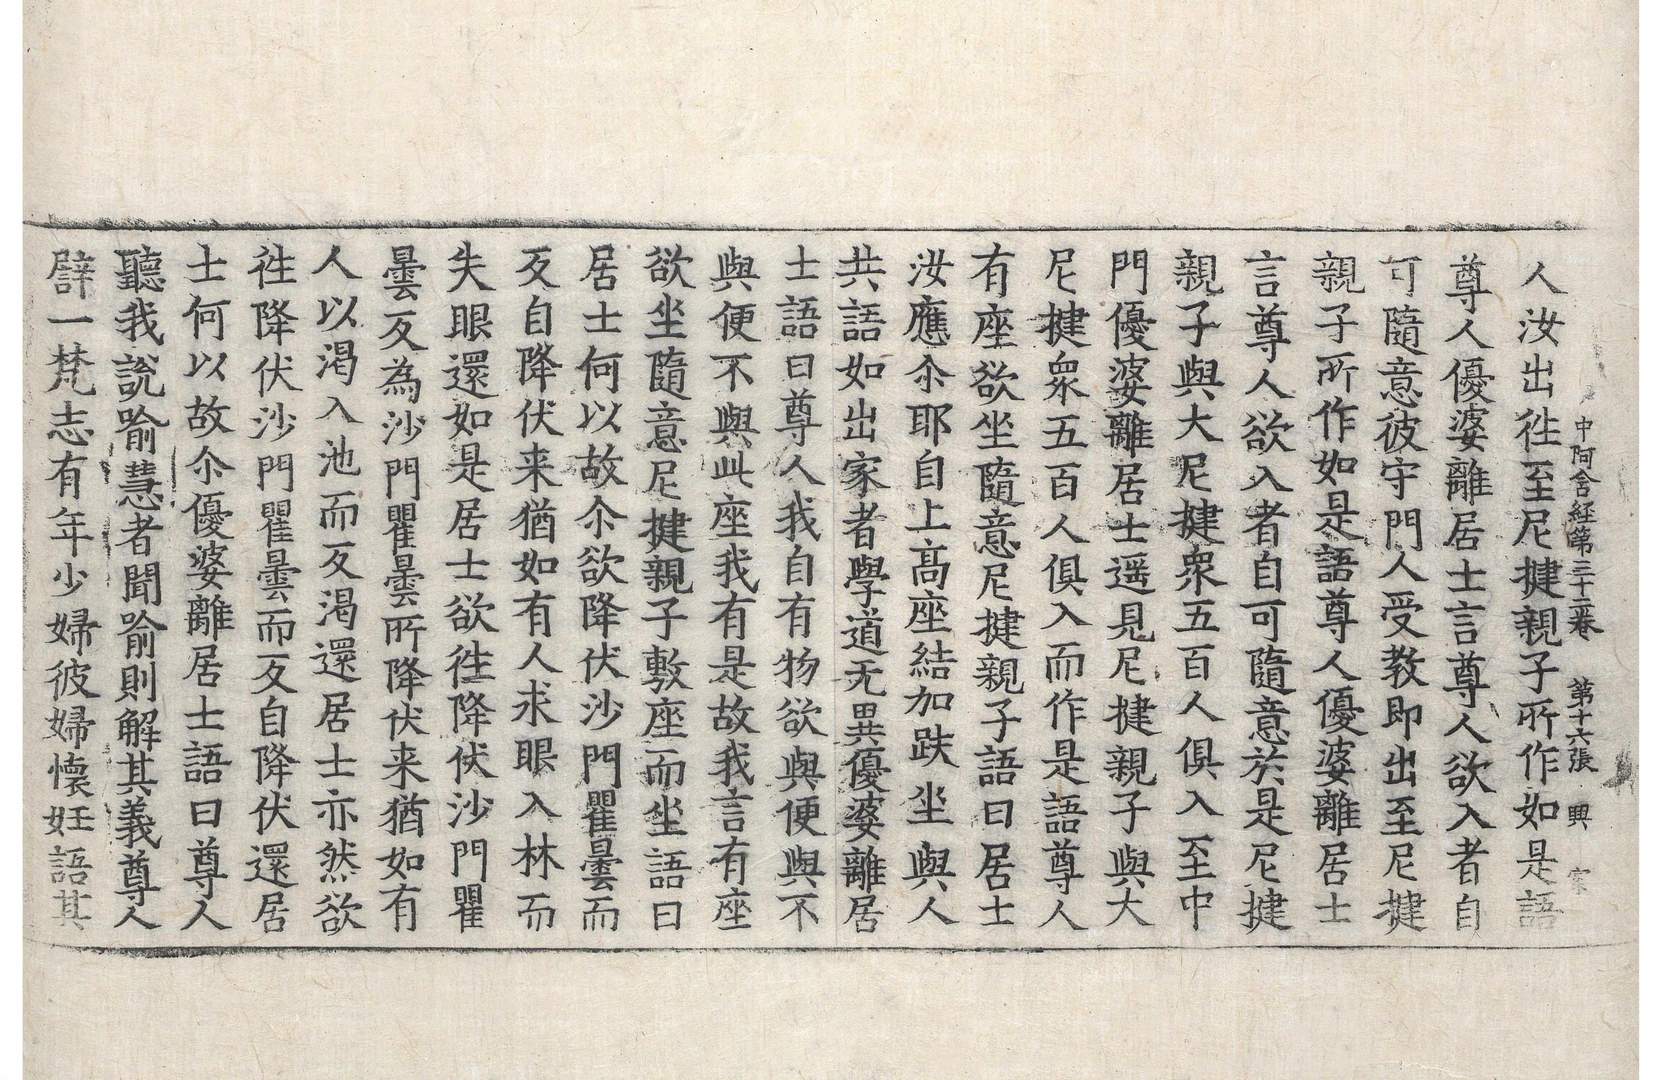 中阿含経第三十二卷　第十六張　興　宲
人汝出徃至尼揵親子所作如是語
尊人優婆離居士言尊人欲入者自
可隨意彼守門人受教即出至尼揵
親子所作如是語尊人優婆離居士
言尊人欲入者自可隨意於是尼揵
親子與大尼揵衆五百人俱入至中
門優婆離居士遥見尼揵親子與大
尼揵衆五百人俱入而作是語尊人
有座欲坐隨意尼揵親子語曰居士
汝應尒耶自上髙座結加趺坐與人
共語如出家者學道无異優婆離居
士語曰尊人我自有物欲與便與不
與便不與此座我有是故我言有座
欲坐隨意尼揵親子敷座而坐語曰
居士何以故尒欲降伏沙門瞿曇而
反自降伏来猶如有人求眼入林而
失眼還如是居士欲徃降伏沙門瞿
曇反為沙門瞿曇所降伏来猶如有
人以渴入池而反渴還居士亦然欲
徃降伏沙門瞿曇而反自降伏還居
士何以故尒優婆離居士語曰尊人
聽我說喻慧者聞喻則解其義尊人
譬一梵志有年少婦彼婦懷妊語其